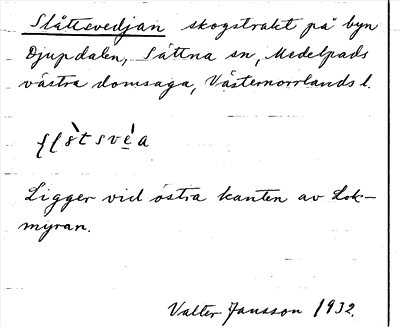 Slåttsvedjan skogstrakt på byn
Djupdalen, Sättna sn, Medelpads
västra domsaga, Västernorrlands l.
Ligger vid östra kanten av Lok-
myran.
Valter Jansson 1932.